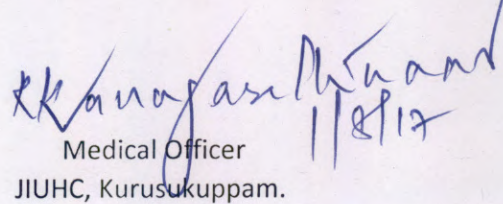 1/8/17
Medical Officer
JIUHC, Kurusukuppam.